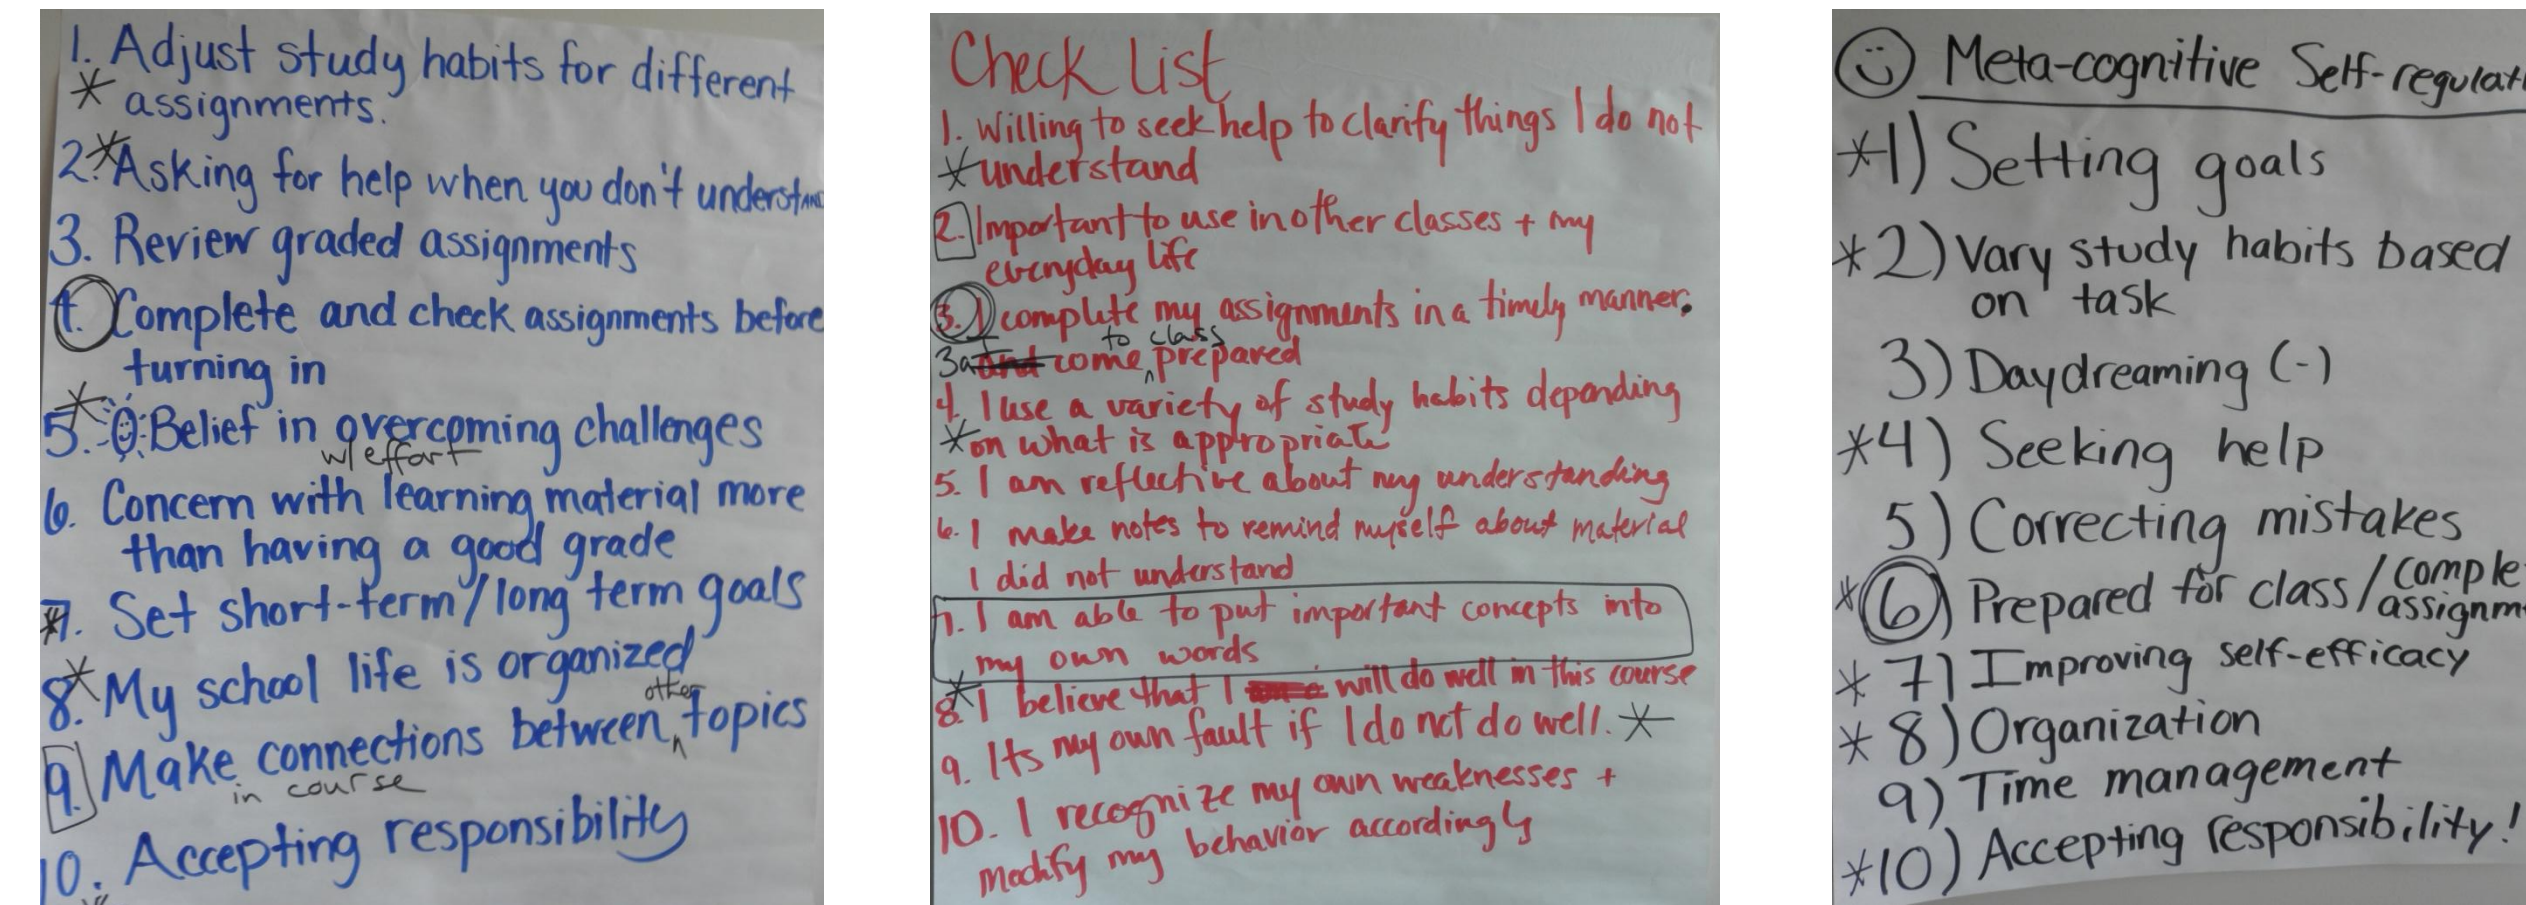 1. Adjust study habits for different
* assignments.
2.* Asking for help when you don't understand
3. Review graded assignments
4. Complete and check assignments before
turning in
* 5. Belief in overcoming challenges
w/ effort
6. Concern with learning material more
than having a good grade
*7. Set short-term/long term goals
8.* My school life is organized
other
9. Make connections between ^ topics
in course
10. Accepting responsibility
Check List
1. Willing to seek help to clarify things I do not
* understand
2. Important to use in other classes + my
everyday life
3. I complete my assignments in a timely manner.
to class
3a I come ^ prepared
4. I use a variety of study habits depending
* on what is appropriate
5. I am reflective about my understanding
6. I make notes to remind myself about material
I did not understand
7. I am able to put important concepts into
my own words
* 8. I believe that I will do well in this course
9. Its my own fault if I do not do well. *
10. I recognize my own weaknesses +
modify my behavior accordingly
Meta-cognitive Self-regulati
*1) Setting goals
*2) Vary study habits based
on task
3) Daydreaming (-)
*4) Seeking help
5) Correcting mistakes
*6) Prepared for class/comple
assignm
*7) Improving self-efficacy
*8) Organization
9) Time management
*10) Accepting responsibility!